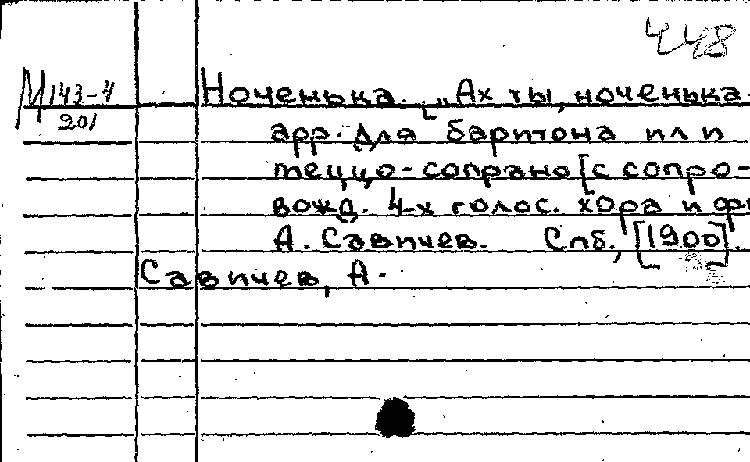 448
М 143-4
201
Ноченька. „Ах ты, ноченька
арр. для баритона или
меццо-сопрано [с сопро-
вожд. 4-х голос. хора и фи
А. Савичев. Спб., [1900].
Савичев, А.